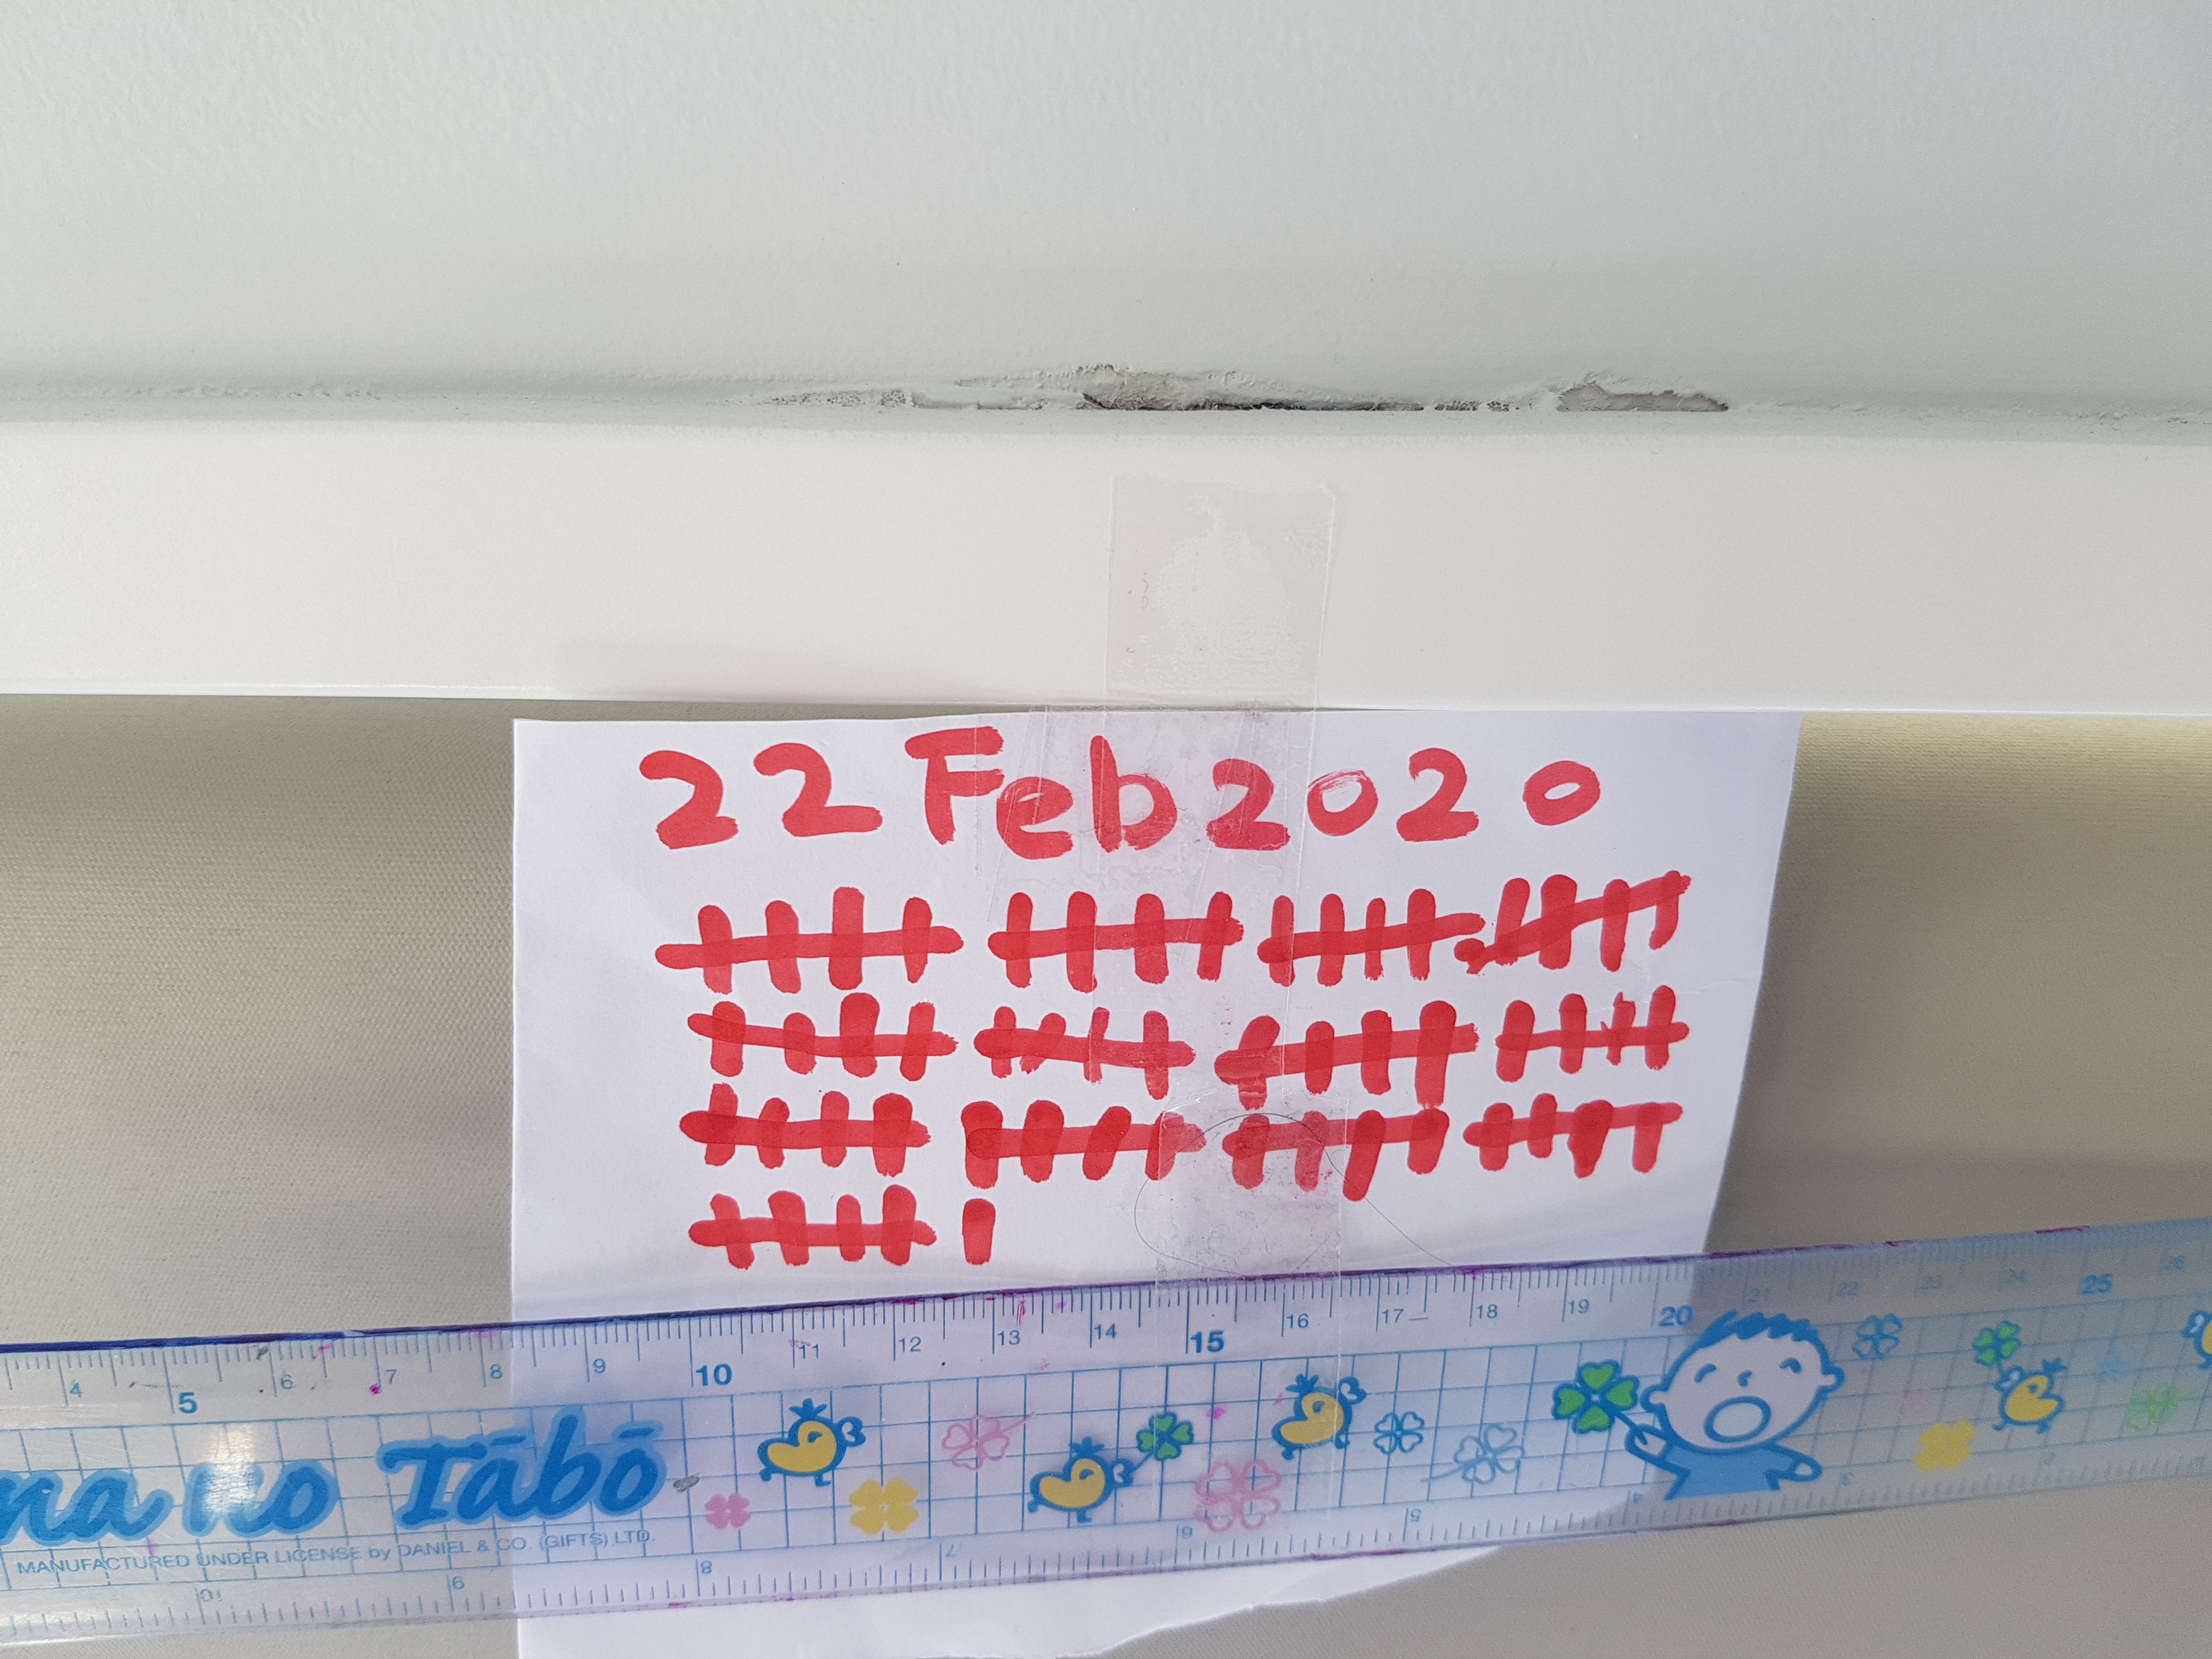 22 Feb 2020
4 5 6 7 8 9 10 11 12 13 14 15 16 17 18 19 20 21 22 23 24 25 26
na ko Tābō
MANUFACTURED UNDER LICENSE by DANIEL & CO. (GIFTS) LTD.
10 9 8 7 6 5 4 3 2